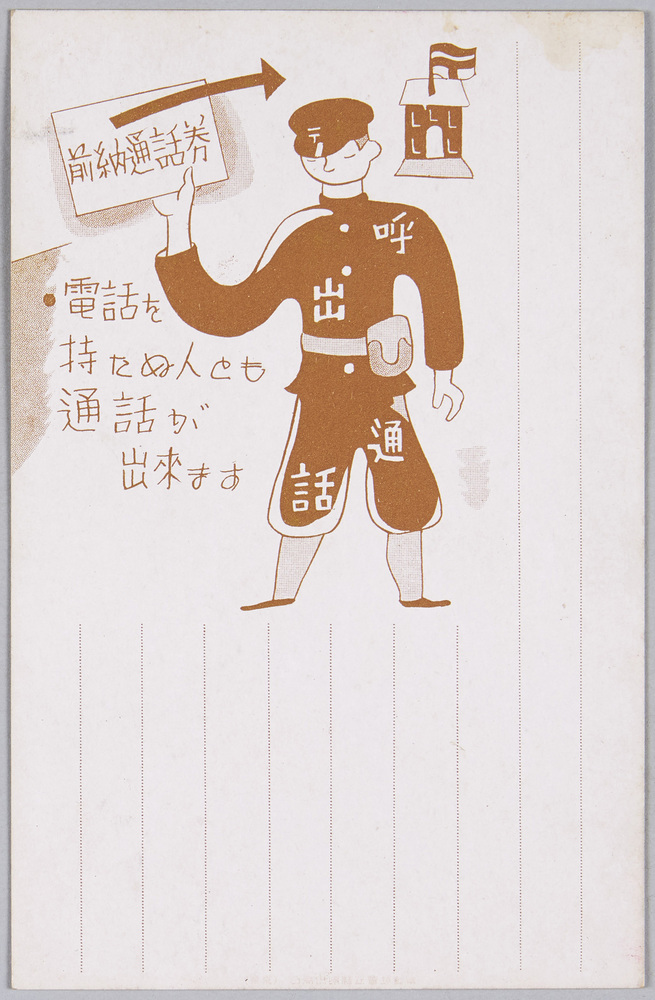 前納通話券
テ
呼
出
通
話
電話を
持たぬ人とも
通話が
出來ます